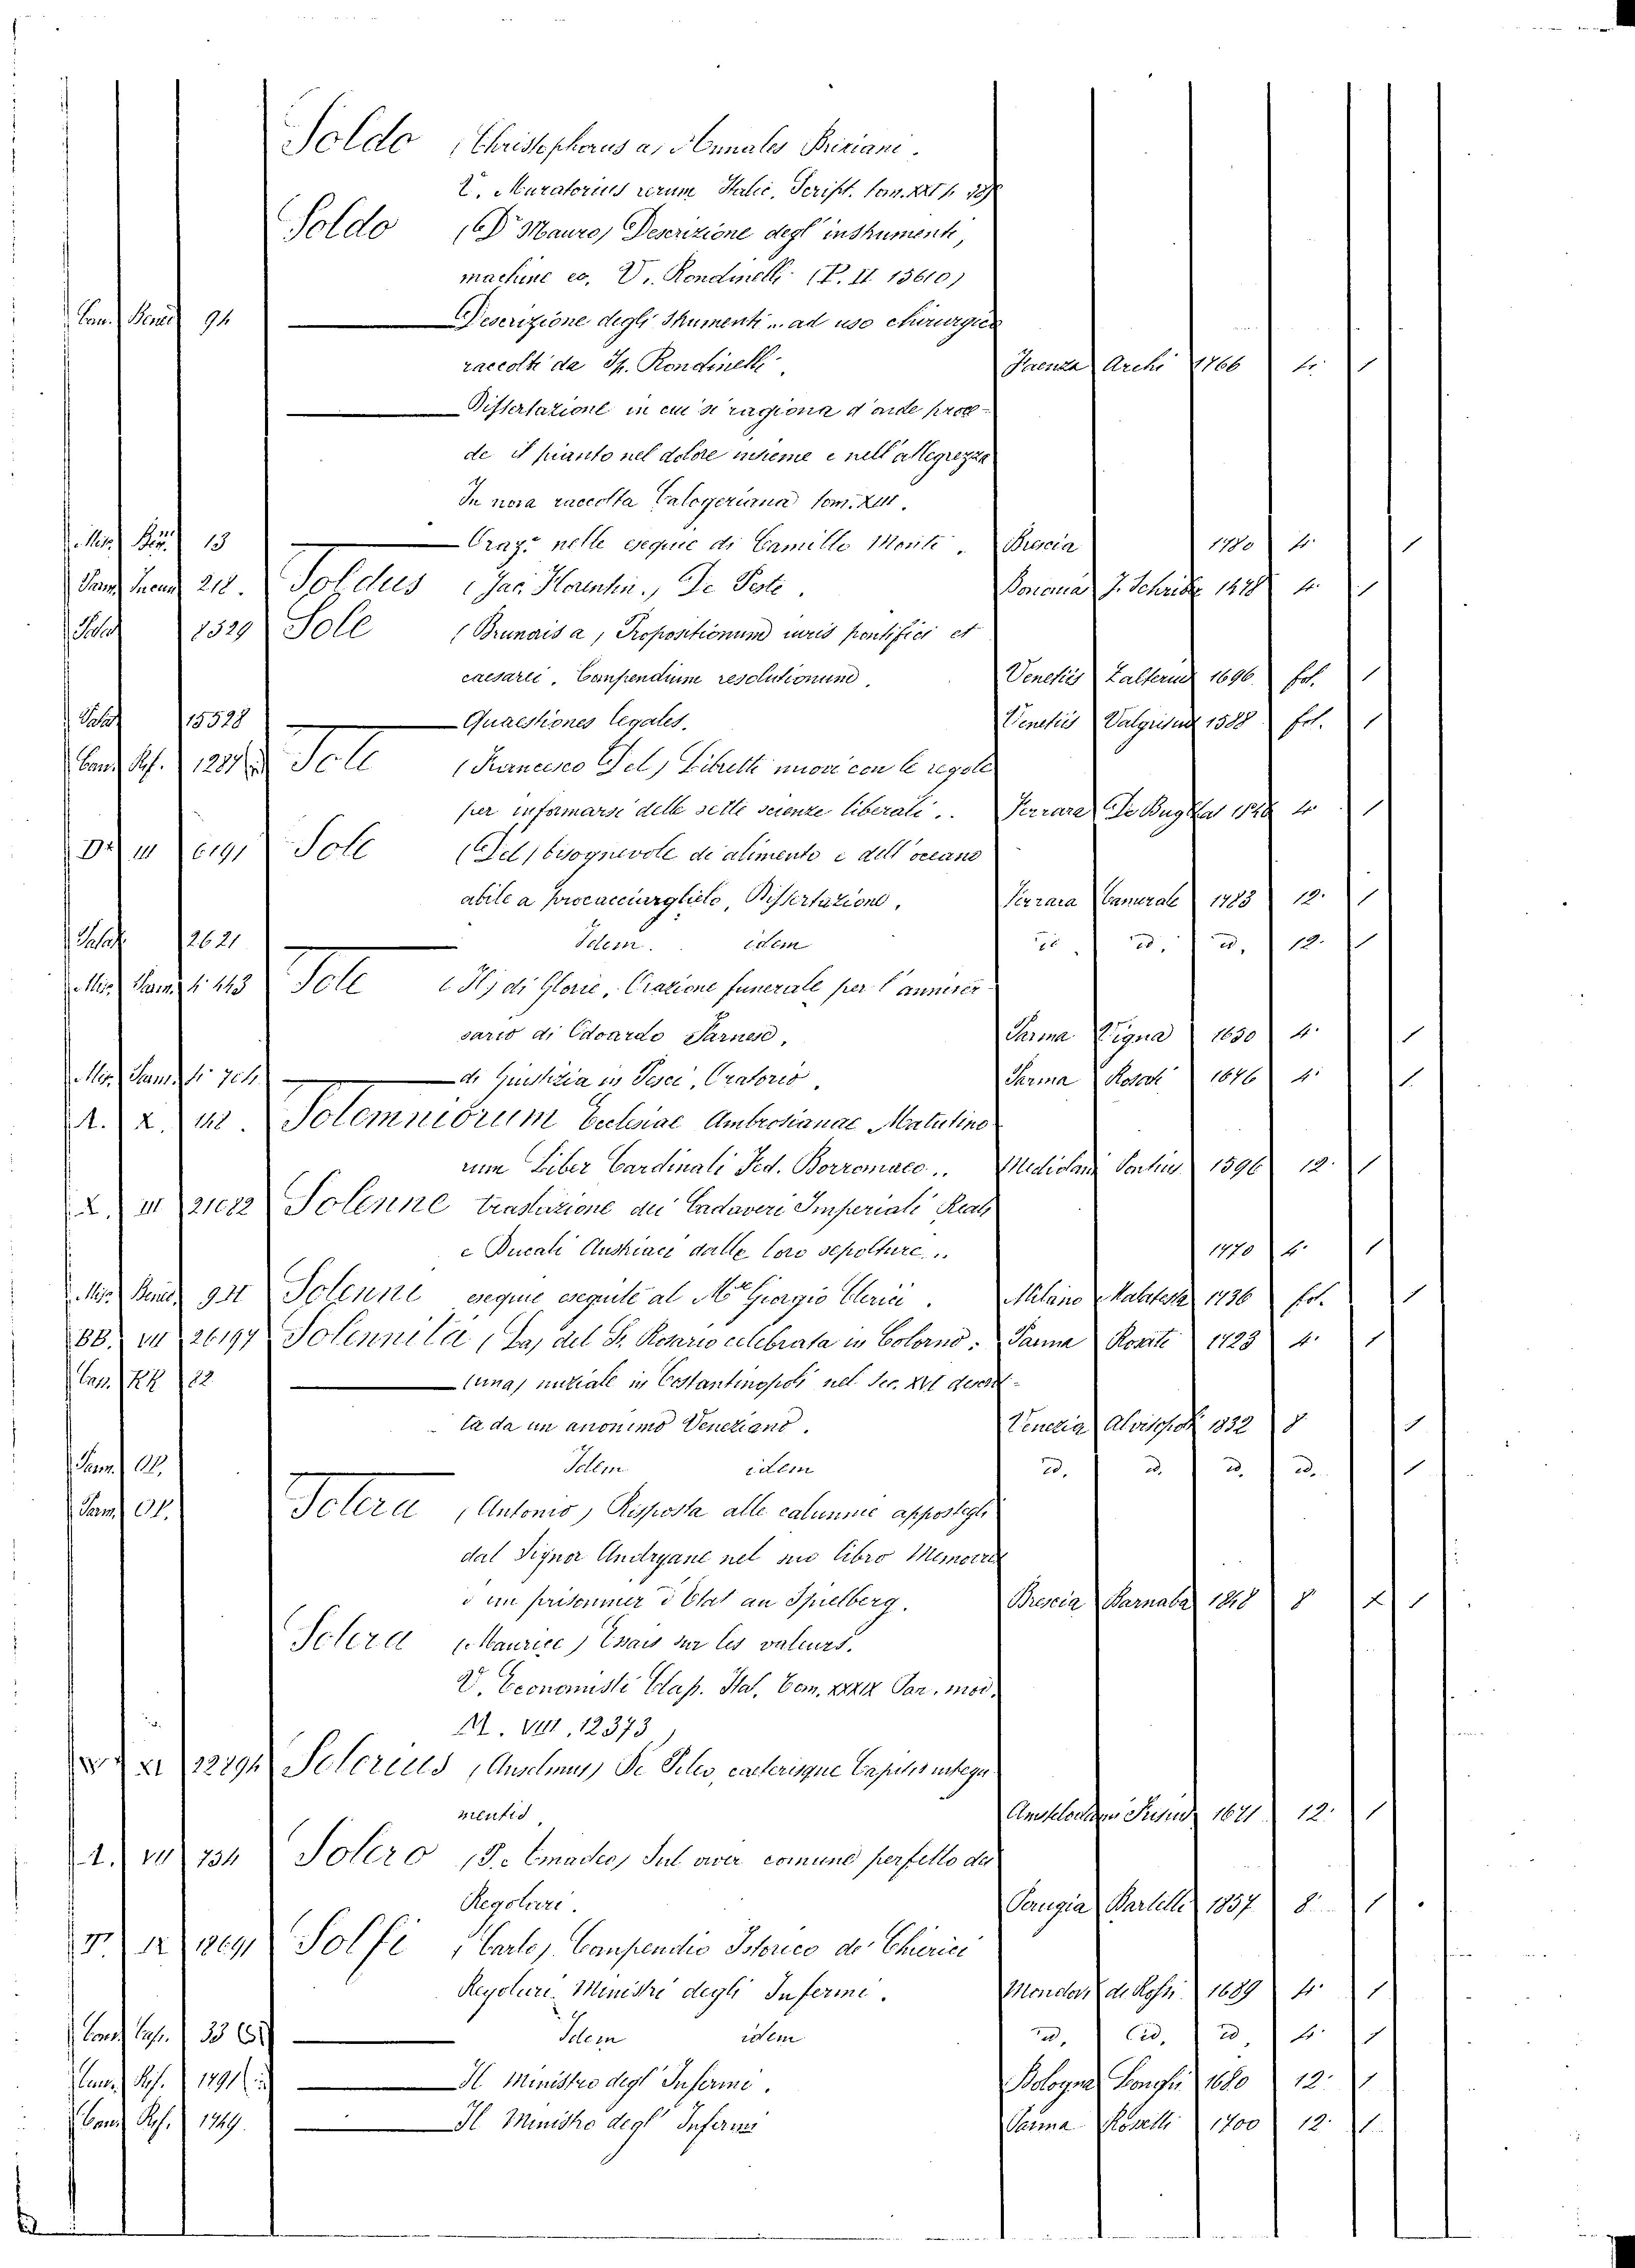 Soldo (Christophorus a) Annales Brixiani.
V. Muratorius rerum Italic. Script. tom. XXI p.
Soldo (D. Mauro) Descrizione degl' instrumenti,
machine ec. V. Rondinelli (P. II 13610)
Cam. Bened 94 Descrizione degli strumenti .. ad uso chirurgico
raccolti da Ip. Rondinelli. Faenza Archi 1766 4. 1
Dissertazione in cui si ragiona d'onde proce-
de il pianto nel dolore insieme e nell'allegrezza
In nova raccolta Calogeriana tom. XIII.
Misc. 13 Oraz. nelle esequie di Camillo Monti. Brescia 1780 4. 1
Parm. Incun 218. Soldus (Jac. Florentin.) De Peste. Bononiae J. Schribe 1478 4. 1
Palat 1529 Sole (Brunoris a) Propositionum iuris pontificii et
caesarei. Compendium resolutionum. Venetiis Zalterius 1696. fol. 1
Palat 15528 Quaestiones legales. Venetiis Valgrisius 1588 fol. 1
Canc. Ref. 1287 Sole (Francesco Del) Libretti nuovi con le regole
per informarsi delle sette scienze liberali.. Ferrara De Buglhat 1546 4 1
D* III 6191 Sole (Del) bisognevole di alimento e dell'oceano
abile a procacciarglielo, Dissertazione. Ferrara Camerale 1783 12. 1
Palat 12621 Idem. idem id. id. id. 12. 1
Misc. Parm. f. 443 Sole (Il) di Glorie, Orazione funerale per l'anniver-
sario di Edoardo Farnese. Parma Vigna 1650 4. 1
Misc. Parm. f. 704 di Giustizia in Pesci, Oratorio. Parma Rosati 1696 4. 1
A. X. 142. Solemniorum Ecclesiae Ambrosianae Matutino-
rum Liber Cardinali Fed. Borromaeo.. Mediolani Pontius 1596 12. 1
X. III 21022 Solenne traslazione dei Cadaveri Imperiali Reali
e Ducali Austriaci dalle loro sepolture... 1770 4. 1
Misc. Bened 941 Solenni esequie eseguite al Mse Giorgio Clerici. Milano Malatesta 1736 fol. 1
BB. VII 26197 Solennità (La) del S. Rosario celebrata in Colorno. Parma Rosati 1723 4. 1
Cap. RR 22 (una) nuziale in Costantinopoli nel Sec. XVI descrit-
ta da un anonimo Veneziano. Venezia Alvisopoli 1832 8 1
Parm. Idem idem id. id. id. id. 1
Parm. Solera (Antonio) Risposta alle calunnie appostegli
dal Signor Andryane nel suo libro Memoires
d'un prisonnier d'Etat au Spielberg. Brescia Barnaba 1848 8 X 1
Solera (Maurice) Essais sur les valeurs.
V. Economisti Class. Ital. Tom. XXXIX Par. mod.
M. VIII. 12373
XI 22294 Solerius (Anselmus) De Pileo, caeterisque Capitis integu-
mentis. Amstelodami Frisius 1671 12. 1
A. VII 734 Solero (P. Emadeo) Sul viver comune perfetto dei
Regolari. Perugia Bartelli 1857 8. 1
IX 18691 Solfi (Carlo) Compendio Istorico de' Chierici
Regolari Ministri degli Infermi. Mondovì de Rossi 1689 4. 1
Canc. Cap. 33 Idem idem id. id. id. 4. 1
Canc. Ref. 1791 Il Ministro degl' Infermi. Bologna Longhi 1680 12. 1
Canc. Ref. 1749. Il Ministro degl' Infermi Parma Roselli 1700 12. 1